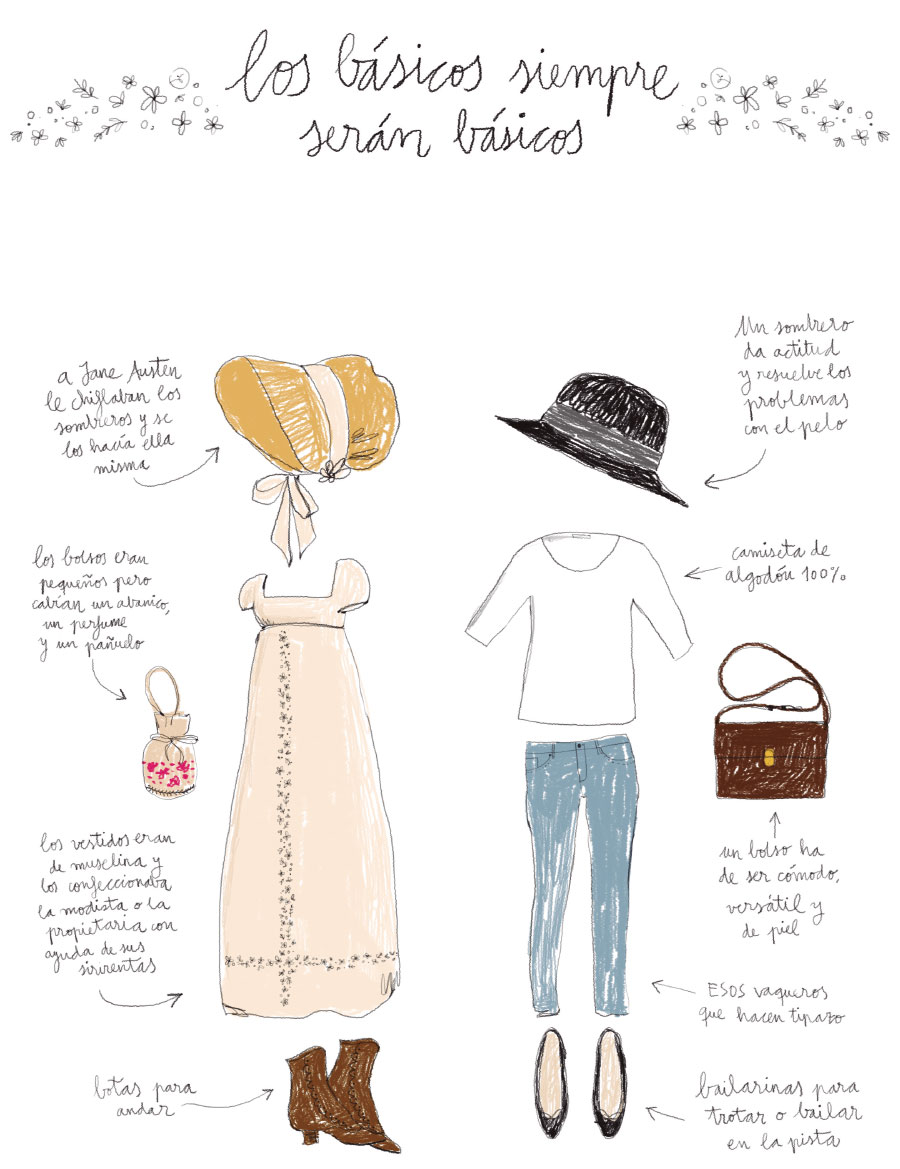 los básicos siempre
serán básicos
a Jane Austen
le chiflaban los
sombreros y se
los hacía ella
misma
Un sombrero
da actitud
y resuelve los
problemas
con el pelo
los bolsos eran
pequeños pero
cabían un abanico,
un perfume
y un pañuelo
camiseta de
algodón 100%
los vestidos eran
de muselina y
los confeccionaba
la modista o la
propietaria con
ayuda de sus
sirvientas
un bolso ha
de ser cómodo,
versátil y
de piel
ESOS vaqueros
que hacen tipazo
botas para
andar
bailarinas para
trotar o bailar
en la pista